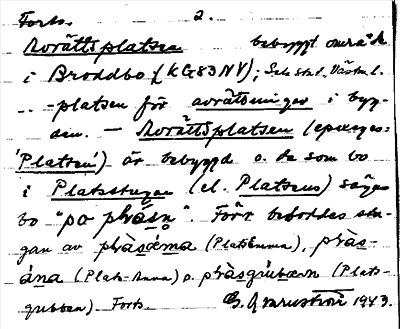 Forts. 2.
Avrättsplatsen bebyggt område
i Broddbo (KG83NV); Sala stad, Västm. l.
... -platsen för avrättningar i byg-
den. — Avrättsplatsen (
'Platsen') är bebyggd o. de som bo
i Platsstugan (el. Platsens) säges
bo "på plàsn". Förr beboddes stu-
gan av plàsäma (PlatsEmma), plàs-
ána (Plats-Anna) o. plàsgubben (Plats-
gubben). Forts. 1943.